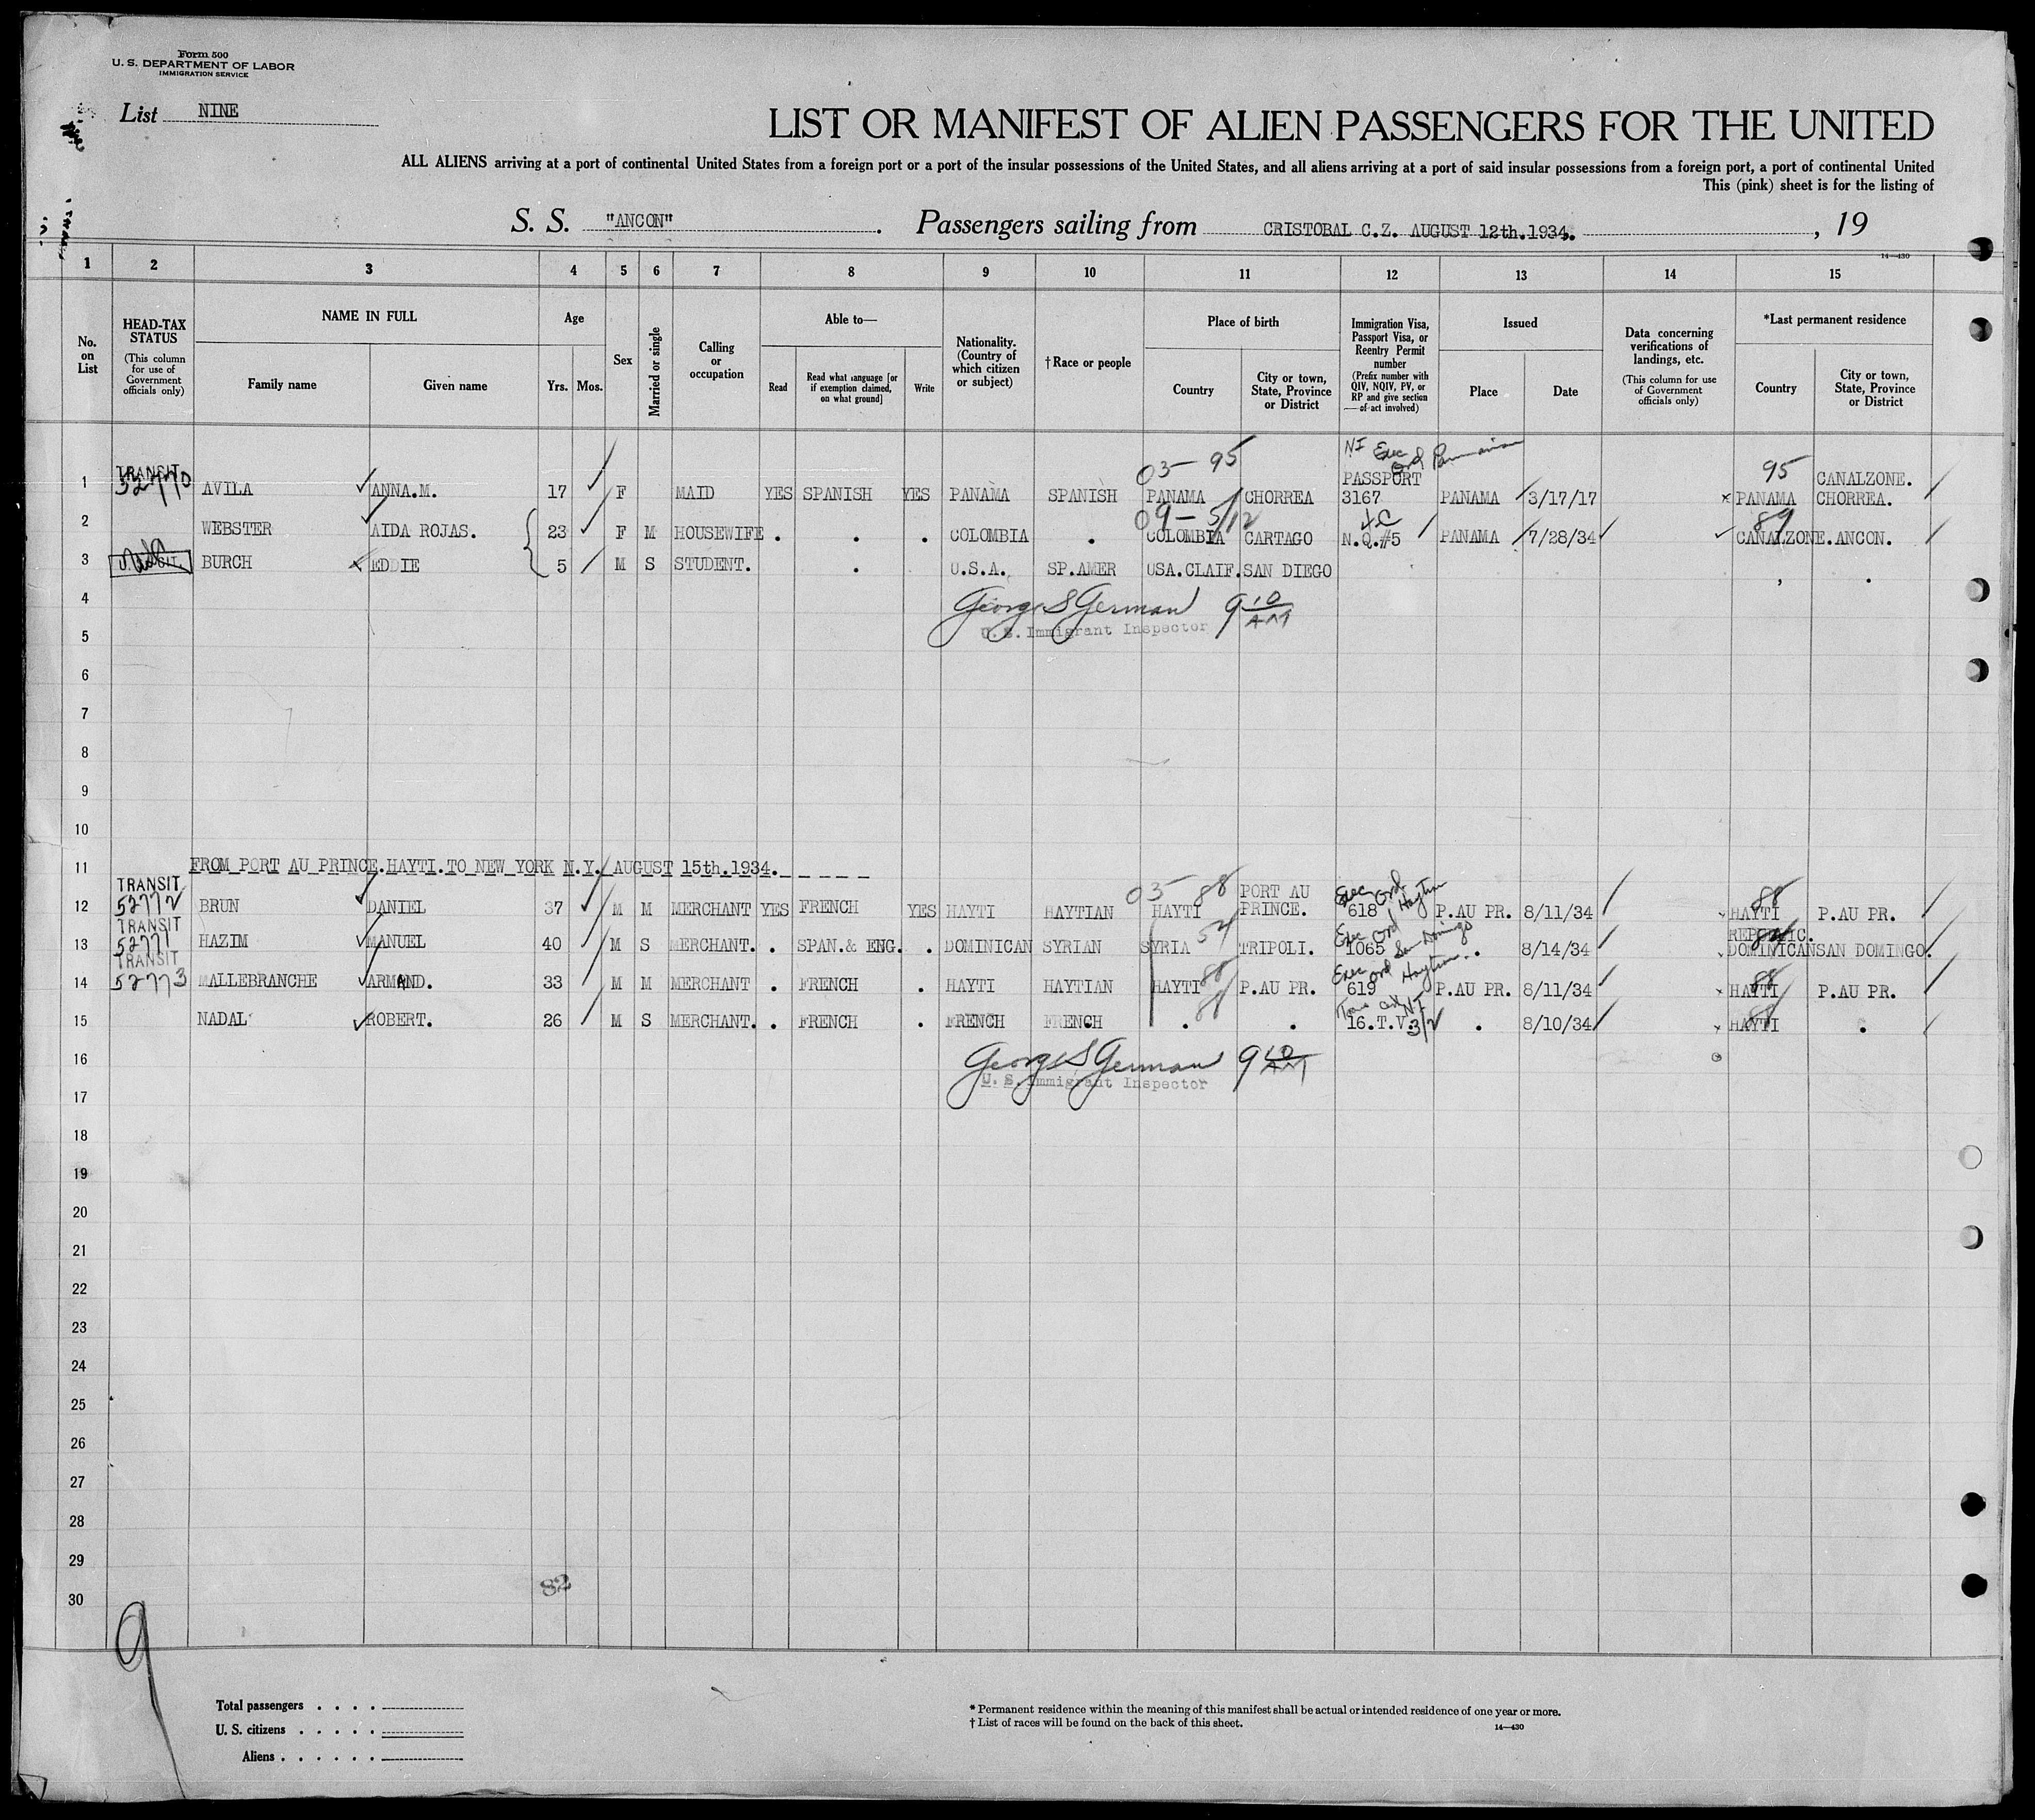 Form 500
U. S. DEPARTMENT OF LABOR
IMMIGRATION SERVICE
List NINE
LIST OR MANIFEST OF ALIEN PASSENGERS FOR THE UNITED
ALL ALIENS arriving at a port of continental United States from a foreign port or a port of the insular possessions of the United States, and all aliens arriving at a port of said insular possessions from a foreign port, a port of continental United
This (pink) sheet is for the listing of
S. S. "ANCON". Passengers sailing from CRISTOBAL C.Z. AUGUST 12th.1934. , 19
14—430
1 2 3 4 5 6 7 8 9 10 11 12 13 14 15
No. on List
HEAD-TAX STATUS
(This column for use of Government officials only)
NAME IN FULL
Family name
Given name
Age
Yrs. Mos.
Sex
Married or single
Calling or occupation
Able to—
Read
Read what language [or if exemption claimed, on what ground]
Write
Nationality. (Country of which citizen or subject)
† Race or people
Place of birth
Country
City or town, State, Province or District
Immigration Visa, Passport Visa, or Reentry Permit number
(Prefix number with QIV, NQIV, PV, or RP and give section of act involved)
Issued
Place
Date
Data concerning verifications of landings, etc.
(This column for use of Government officials only)
*Last permanent residence
Country
City or town, State, Province or District
03-95 NI Exec Ord Panamanian 95
1 TRANSIT 52770 AVILA ANNA.M. 17 F MAID YES SPANISH YES PANAMA SPANISH PANAMA CHORREA PASSPORT 3167 PANAMA 3/17/17 PANAMA CANALZONE. CHORREA.
09-5/12 89
2 WEBSTER AIDA ROJAS. 23 F M HOUSEWIFE . . . COLOMBIA . COLOMBIA CARTAGO N.Q.#5 PANAMA 7/28/34 CANALZONE.ANCON.
3 BURCH EDDIE 5 M S STUDENT. . U.S.A. SP.AMER USA.CLAIF.SAN DIEGO
4 George S German 9 10 AM
5 U. S. Immigrant Inspector
6
7
8
9
10
11 FROM PORT AU PRINCE.HAYTI.TO NEW YORK N.Y. AUGUST 15th.1934.
03 88 Exec Ord Haytian 88
12 TRANSIT 52772 BRUN DANIEL 37 M M MERCHANT YES FRENCH YES HAYTI HAYTIAN HAYTI PORT AU PRINCE. 618 P.AU PR. 8/11/34 HAYTI P.AU PR.
54 Exec Ord San Domingo
13 TRANSIT 52771 HAZIM MANUEL 40 M S MERCHANT. . SPAN.& ENG. . DOMINICAN SYRIAN SYRIA TRIPOLI. 1065 . 8/14/34 REPUBLIC. DOMINICAN SAN DOMINGO.
88 Exec Ord Haytian 88
14 TRANSIT 52773 MALLEBRANCHE ARMAND. 33 M M MERCHANT . FRENCH . HAYTI HAYTIAN HAYTI P.AU PR. 619 P.AU PR. 8/11/34 HAYTI P.AU PR.
88
15 NADAL ROBERT. 26 M S MERCHANT. . FRENCH . FRENCH FRENCH . . 16.T.V. 3/2 . 8/10/34 HAYTI .
16 George S German 9 10 AM
U. S. Immigrant Inspector
17
18
19
20
21
22
23
24
25
26
27
28
29
82
30
9
Total passengers . . . .
U. S. citizens . . . . .
Aliens . . . . . .
* Permanent residence within the meaning of this manifest shall be actual or intended residence of one year or more.
† List of races will be found on the back of this sheet.
14—430